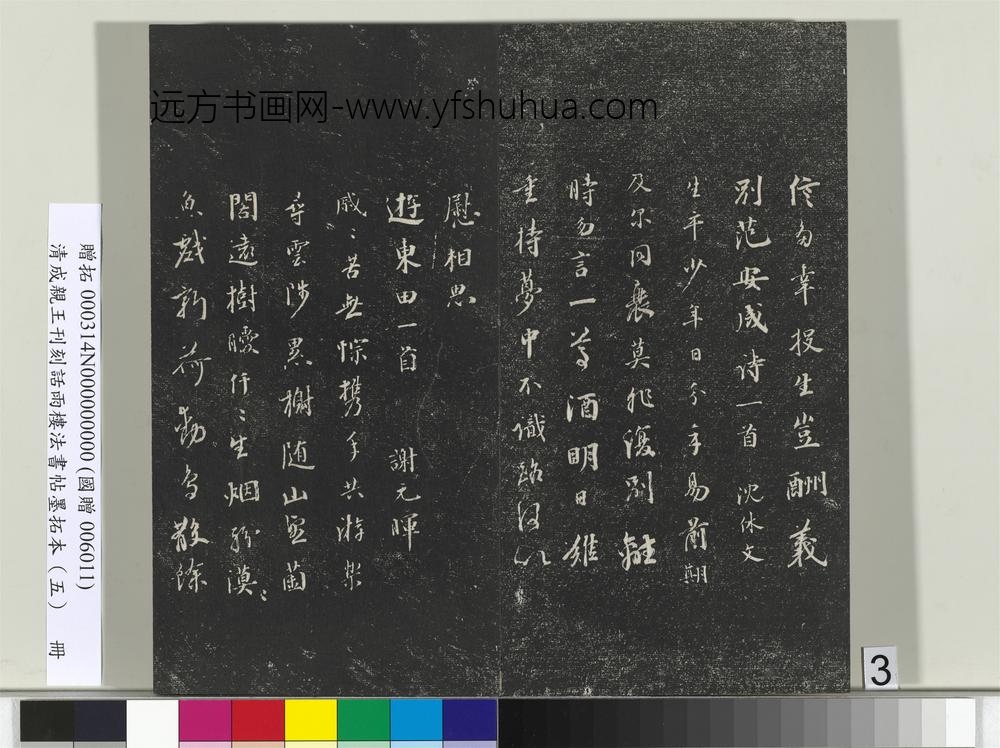 远方书画网-www.yfshuhua.com
信多幸投生豈酬義
別范安成诗一首 沈休文
生平少年日分手易前期
及尔同衰莫非復別離
時勿言一尊酒明日難
重持夢中不識路何以
慰相思
遊東田一首 謝元暉
慼〻苦無悰攜手共游樂
尋雲陟累榭随山望菌
閣遠樹曖仟〻生烟紛漠〻
魚戲新荷動鳥散餘
贈拓 000314N000000000 (國贈 006011)
清成親王刊刻話雨樓法書帖墨拓本（五） 冊
3